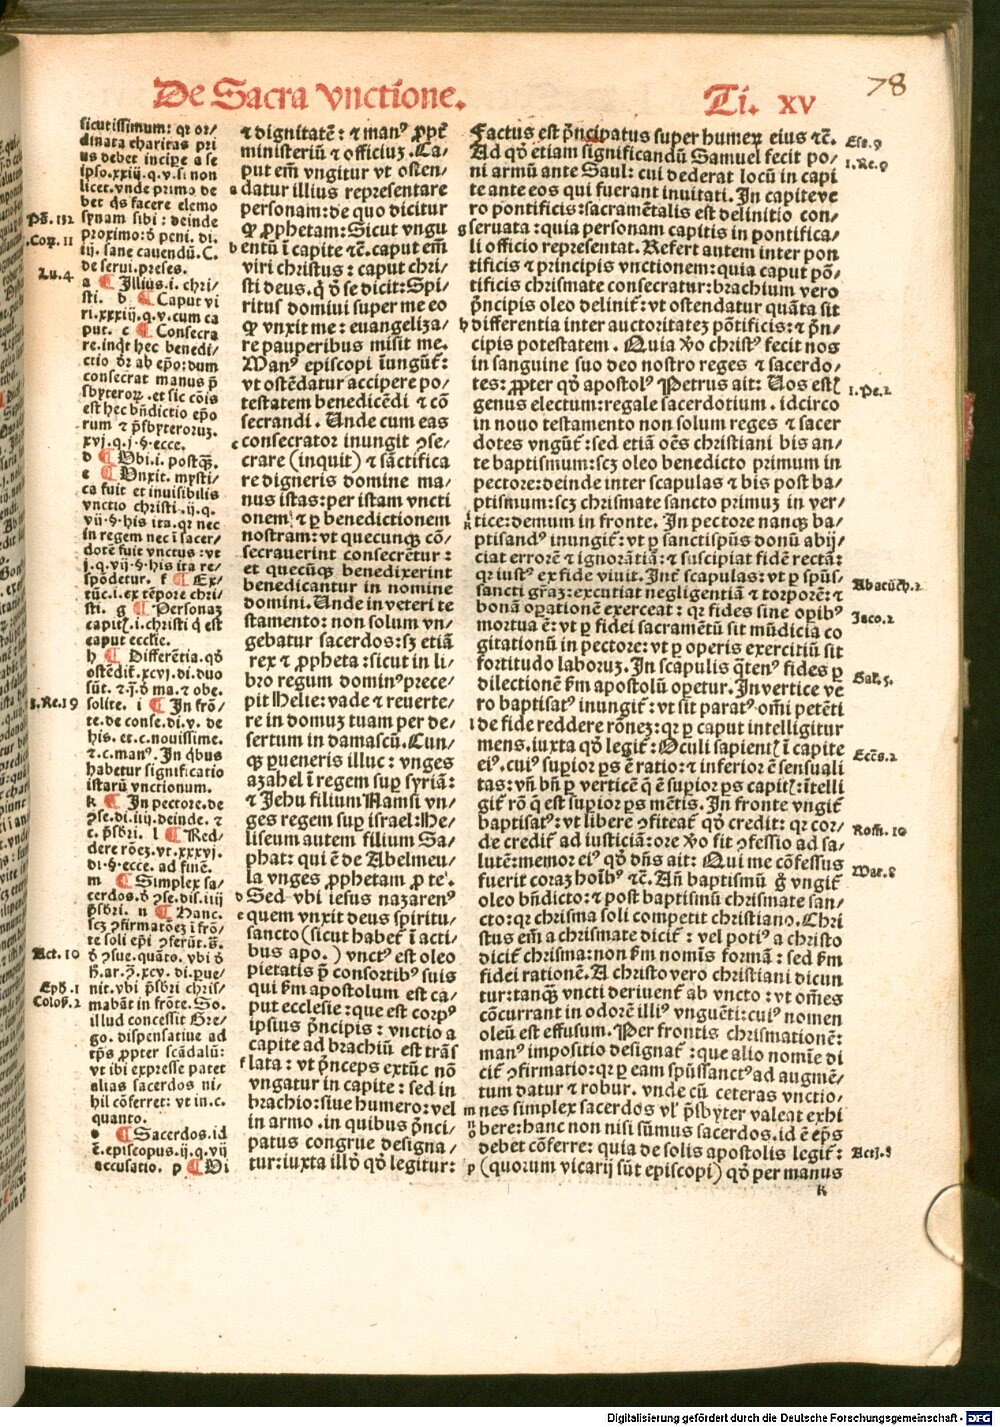 De Sacra vnctione. Ti. XV
78
sicutissimum: qr or/
dinata charitas pri
us debet incipe a se
ipso. xxiij. q. v. si non
licet. vnde primo de
bet qs facere elemo
synam sibi: deinde
proximo: ð peni. di.
iij. sane cauendū. C.
de serui. preses.
a ¶ Illius .i. chri/
sti. b ¶ Caput vi
ri. xxxiij. q. v. cum ca
put. c ¶ Consecra
re. inqt hec benedi/
ctio dr ab epo: dum
consecrat manus p̄
sbyteroꝝ. et sic cōis
est hec bn̄dictio epo
rum ⁊ p̄sbyteroruꝫ.
xvj. q. j. §. ecce.
d ¶ Vbi .i. postqꝫ.
e ¶ Vnxit. mysti/
ca fuit et inuisibilis
vnctio christi .ij. q.
vij. §. his ita. qr nec
in regem nec ī sacer/
dotē fuit vnctus: vt
j. q. vij. §. his ita re/
spōdetur. f ¶ Ex/
tūc .i. ex tēpore chri/
sti. g ¶ Personaꝫ
capiꝭ .i. christi q̇ est
caput ecclie.
h ¶ Differētia. qð
ostēdit̄. xcvj. di. duo
sūt. ⁊ .j. ð ma. ⁊ obe.
solite. i ¶ In frō/
te. de conse. di. v. de
his. et .c. nouissime.
⁊ .c. man⁹. In qbus
habetur significatio
istarū vnctionum.
k ¶ In pectore. de
ꝯse. di. iiij. deinde. ⁊
c. p̄sbri. l ¶ Red/
dere rōeꝫ. vt. xxxvj.
di. §. ecce. ad finē.
m ¶ Simplex sa/
cerdos. ð ꝯse. dis. iiij
p̄sbri. n ¶ Hanc.
scꝫ ꝯfirmatōeꝫ ī frō/
te soli epi ꝯferūt. s̄.
ð ꝯsue. quāto. vbi ð
h̄. ar. ꝫ. xcv. di. ꝑue/
nit. vbi p̄sbri chris/
mabāt in frōte. So.
illud concessit Gre/
go. dispensatiue ad
tp̄s ꝓpter scādalū:
vt ibi expresse patet
alias sacerdos ni/
hil cōferret: vt in .c.
quanto.
o ¶ Sacerdos. id
ē. episcopus. ij. q. vij
accusatio. p ¶ Di
⁊ dignitatē: ⁊ man⁹ ꝓpt̄
ministeriū ⁊ officiuꝫ. Ca/
put em̄ vngitur vt osten/
datur illius representare
personam: de quo dicitur
ꝙ ꝓphetam: Sicut vngu
entū ī capite ⁊c̄. caput em̄
viri christus: caput chri/
sti deus. q̇ ð se dicit: Spi/
ritus domini super me eo
ꝙ vnxit me: euangeliza/
re pauperibus misit me.
Man⁹ episcopi īungūt̄:
vt ostēdatur accipere po/
testatem benedicēdi ⁊ cō
secrandi. Unde cum eas
consecrator inungit ꝯse/
crare (inquit) ⁊ sāctifica
re digneris domine ma/
nus istas: per istam vncti
onem ⁊ ꝑ benedictionem
nostram: vt quecunqꝫ cō/
secrauerint consecrētur:
et quecūqꝫ benedixerint
benedicantur in nomine
domini. Unde in veteri te
stamento: non solum vn/
gebatur sacerdos: sꝫ etiā
rex ⁊ ꝓpheta: sicut in li/
bro regum domin⁹ prece/
pit Helie: vade ⁊ reuerte/
re in domuꝫ tuam per de/
sertum in damascū. Cun/
qꝫ ꝑueneris illuc: vnges
azahel ī regem suꝑ syriā:
⁊ Jehu filium Namsi vn/
ges regem suꝑ israel: He/
liseum autem filium Sa/
phat: qui ē de Abelmeu/
la vnges ꝓphetam ꝑ te.
Sed vbi iesus nazaren⁹
quem vnxit deus spiritu/
sancto (sicut habet̄ ī acti/
bus apo.) vnct⁹ est oleo
pietatis p̄ consortib⁹ suis
qui fm̄ apostolum est ca/
put ecclesie: que est corp⁹
ipsius p̄ncipis: vnctio a
capite ad brachiū est trās
lata: vt p̄nceps extūc nō
vngatur in capite: sed in
brachio: siue humero: vel
in armo. in quibus p̄nci/
patus congrue designa/
tur: iuxta illð qð legitur:
Factus est p̄ncipatus super humeꝝ eius ⁊c̄.
Ad qð etiam significandū Samuel fecit po/
ni armū ante Saul: cui dederat locū in capi
te ante eos qui fuerant inuitati. In capite ve
ro pontificis: sacramētalis est delinitio con/
seruata: quia personam capitis in pontifica/
li officio representat. Refert autem inter pon
tificis ⁊ principis vnctionem: quia caput pō/
tificis chrismate consecratur: brachium vero
p̄ncipis oleo delinit̄: vt ostendatur quāta sit
differentia inter auctoritateꝫ pōtificis: ⁊ p̄n/
cipis potestatem. Quia v̄o christ⁹ fecit nos
in sanguine suo deo nostro reges ⁊ sacerdo/
tes: ꝓpter qð apostol⁹ Petrus ait: Uos estꝭ
genus electum: regale sacerdotium. idcirco
in nouo testamento non solum reges ⁊ sacer
dotes vngūt̄: sed etiā oēs christiani bis an/
te baptismum: scꝫ oleo benedicto primum in
pectore: deinde inter scapulas ⁊ bis post ba/
ptismum: scꝫ chrismate sancto primuꝫ in ver/
tice: demum in fronte. In pectore nanqꝫ ba/
ptisand⁹ inungit̄: vt ꝑ sanctispūs donū abij/
ciat errorē ⁊ ignorātiā: ⁊ suscipiat fidē rectā:
qr iust⁹ ex fide viuit. Int̄ scapulas: vt ꝑ spūs/
sancti gr̄aꝫ: excutiat negligentiā ⁊ torporē: ⁊
bonā oꝑationē exerceat: qr fides sine oꝑib⁹
mortua ē: vt ꝑ fidei sacramētū sit mūdicia co
gitationū in pectore: vt ꝑ operis exercitiū sit
fortitudo laboruꝫ. In scapulis q̄ten⁹ fides ꝑ
dilectionem fm̄ apostolū oꝑetur. In vertice ve
ro baptisat⁹ inungit̄: vt sit parat⁹ om̄i petēti
de fide reddere rōneꝫ: qr ꝑ caput intelligitur
mens. iuxta qð legit̄: Oculi sapientꝭ ī capite
ei⁹. cui⁹ suꝑior ps ē ratio: ⁊ inferior ē sensuali
tas: vn̄ bn̄ ꝑ verticē q̄ ē suꝑior ps capitꝭ: ītelli
git̄ rō q̄ est suꝑior ps mētis. In fronte vngit̄
baptisat⁹: vt libere ꝯfiteat̄ qð credit: qr cor/
de credit̄ ad iusticiā: ore v̄o fit ꝯfessio ad sa/
lutē: memor ei⁹ qð dn̄s ait: Qui me cōfessus
fuerit coraꝫ hoīb⁹ ⁊c̄. An̄ baptismū g̊ vngit̄
oleo bn̄dicto: ⁊ post baptismū chrismate san/
cto: qr chrisma soli competit christiano. Chri
stus em̄ a chrismate dicit̄: vel poti⁹ a christo
dicit̄ chrisma: non fm̄ nomīs formā: sed fm̄
fidei rationē. A christo vero christiani dicun
tur: tanqꝫ vncti deriuent̄ ab vncto: vt om̄es
cōcurrant in odorē illi⁹ vnguēti: cui⁹ nomen
oleū est effusum. Per frontis chrismationē:
man⁹ impositio designat̄: que alio nomīe di
cit̄ ꝯfirmatio: qr ꝑ eam spūssanct⁹ ad augmē/
tum datur ⁊ robur. vnde cū ceteras vnctio/
nes simplex sacerdos vl̓ p̄sbyter valeat exhi
bere: hanc non nisi sūmus sacerdos. id ē ep̄s
debet cōferre: quia de solis apostolis legit̄:
(quorum vicarij sūt episcopi) qð per manus
k
Ps. 132
.Coꝝ. 11
Lu. 4
3. Re. 19
Act. 10
Eph. 1
Coloss. 2
Esa. 9
1. Re. 9
1. Pe. 2
Abacūch. 2
Jaco. 2
Gal. 5.
Eccs. 2
Rom. 10
Mat. 8
Act. 8
Digitalisierung gefördert durch die Deutsche Forschungsgemeinschaft - DFG